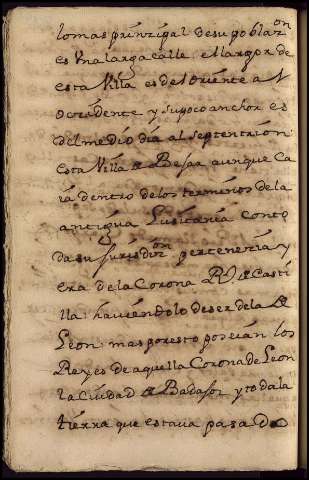 lo mas prinzipal de su poblazon
es vna larga calle. el largor de
esta Villa es del oriente al
occidente y su poco anchor es
del medio dia al septentrion:
esta Villa de Bejar aunque ca
ia dentro de los terminos de la
antigua Lusitania con to
da su jurisdizion pertenezia y
era de la Corona Rl de Casti
lla, haviendolo de ser de la de
Leon: mas por esto poseian los
Reyes de aquella Corona de Leon
la ciudad de Badajoz y toda la
tierra que estava pasado